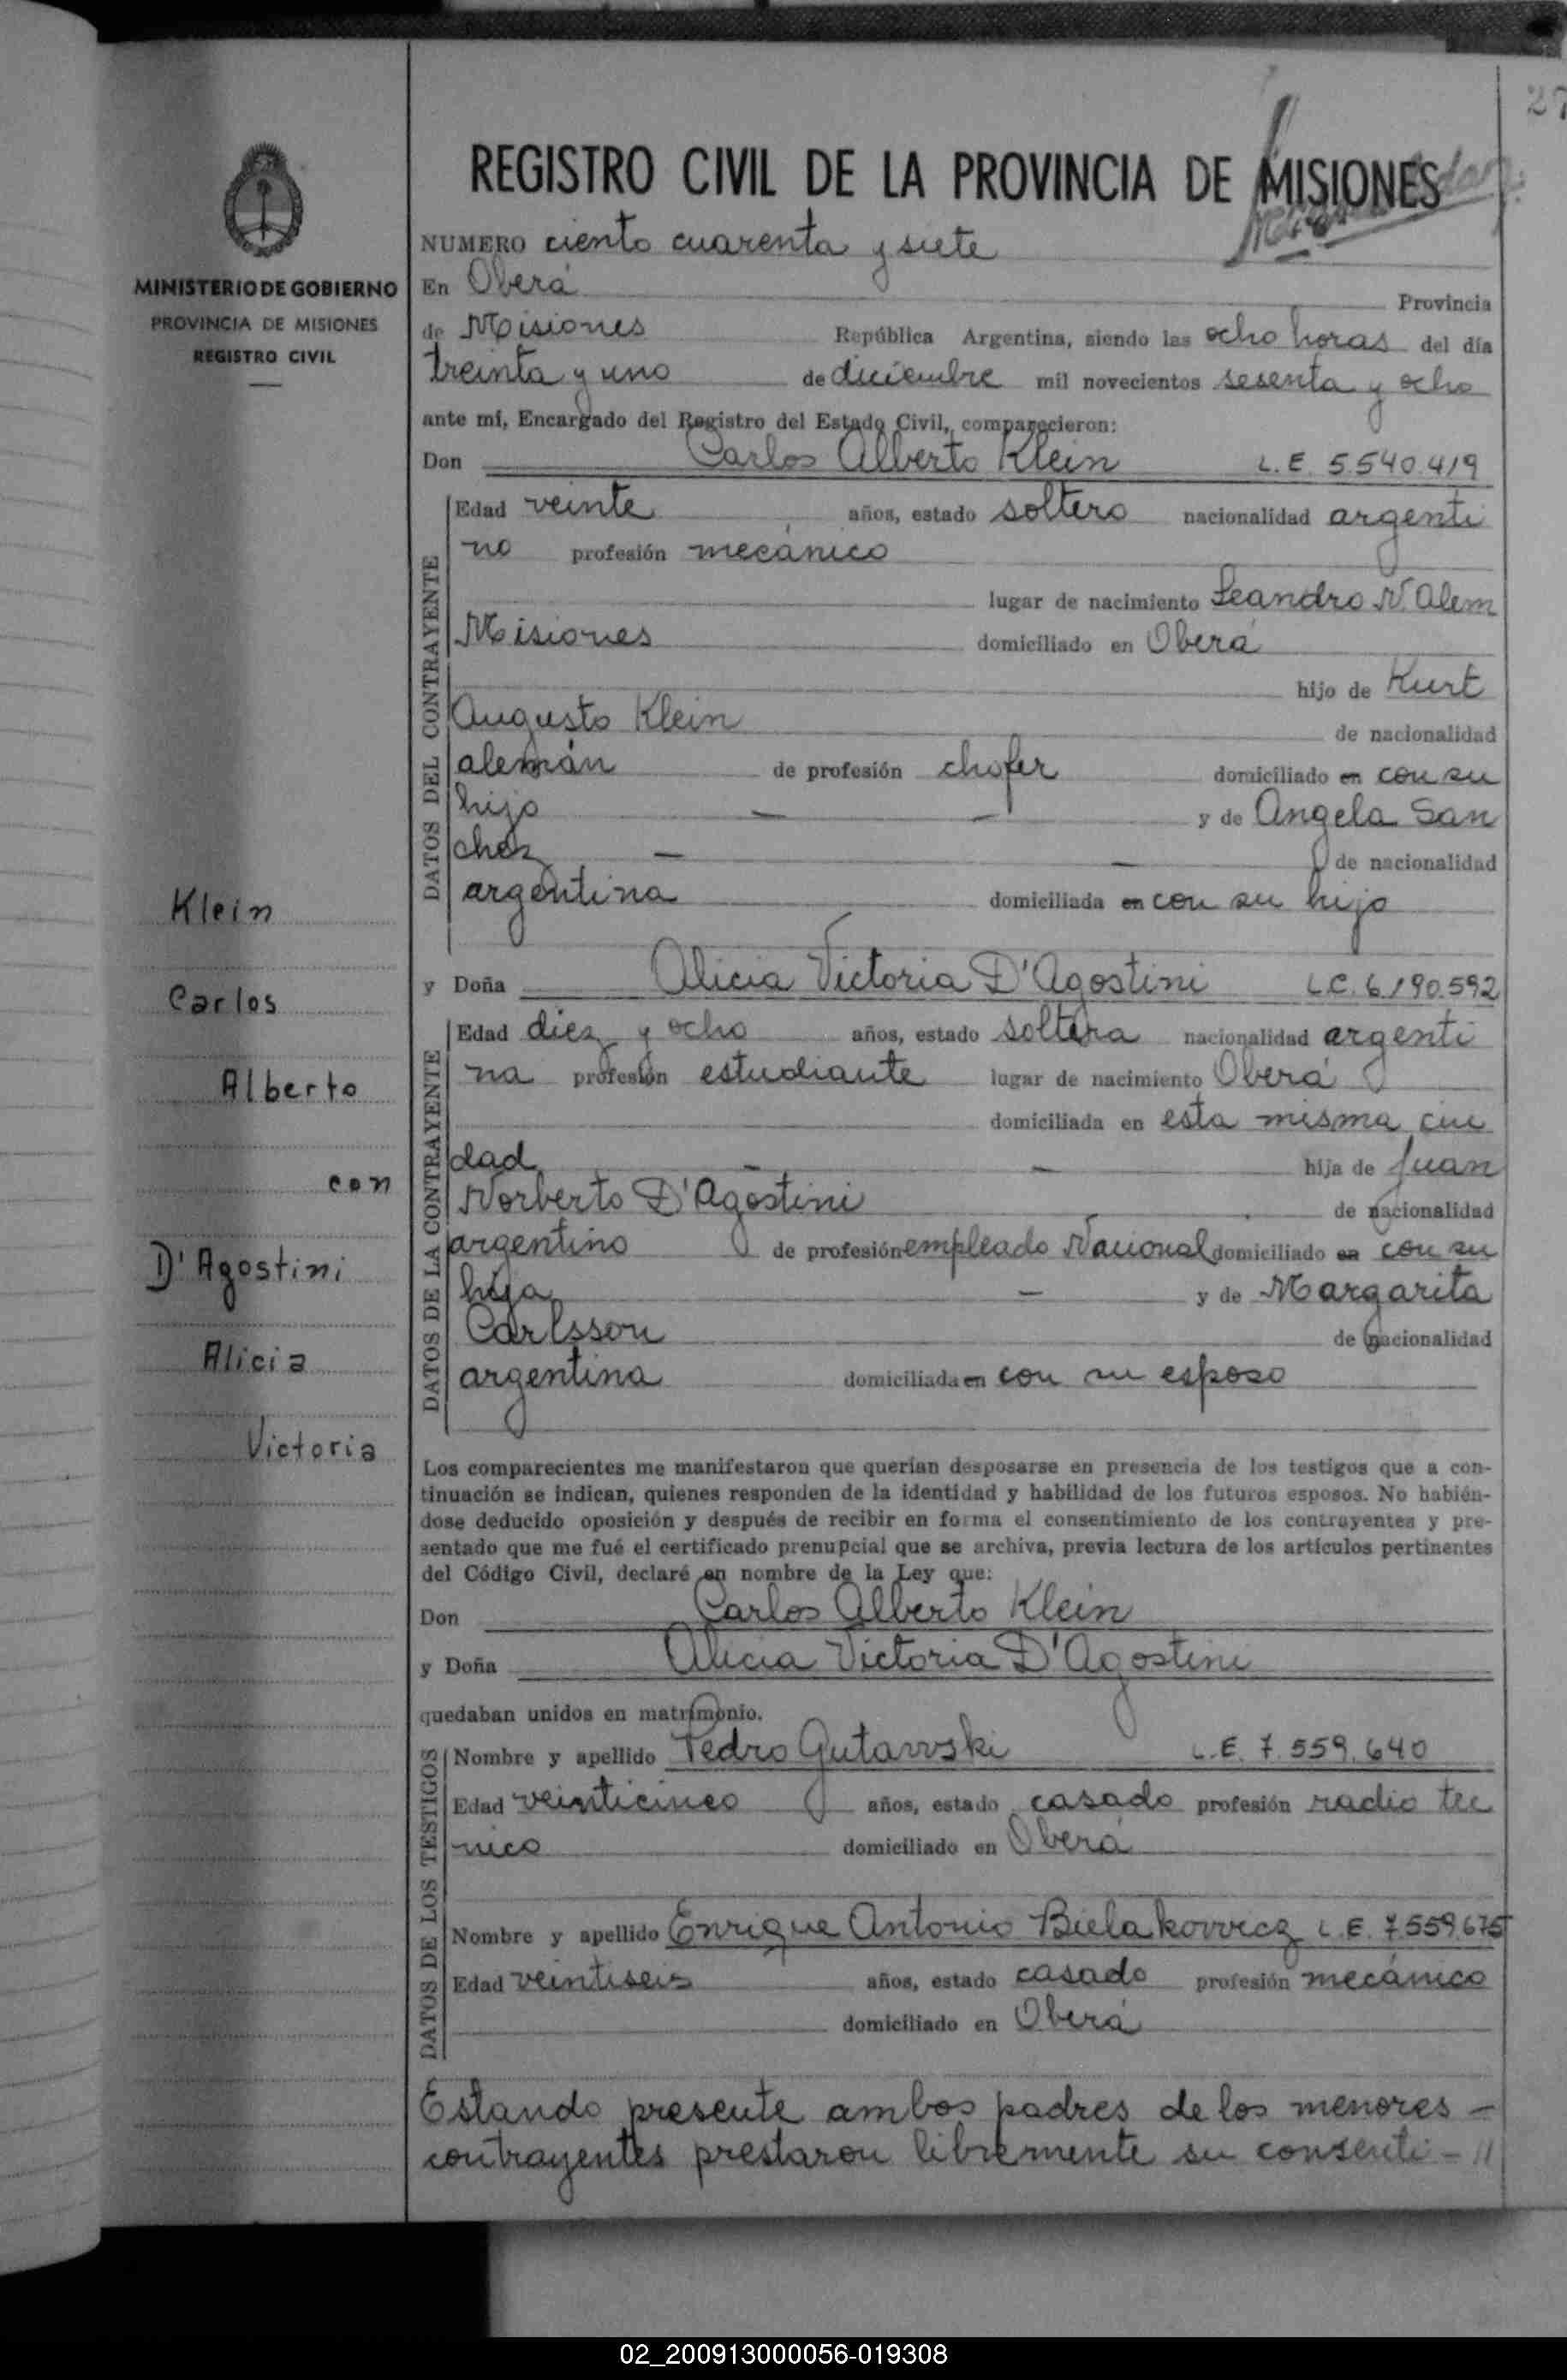 27
REGISTRO CIVIL DE LA PROVINCIA DE MISIONES
NUMERO ciento cuarenta y siete
MINISTERIO DE GOBIERNO
PROVINCIA DE MISIONES
REGISTRO CIVIL
En Oberá Provincia
de Misiones República Argentina, siendo las ocho horas del día
treinta y uno de diciembre mil novecientos sesenta y ocho
ante mí, Encargado del Registro del Estado Civil, comparecieron:
Don Carlos Alberto Klein L. E. 5.540.419
DATOS DEL CONTRAYENTE
Edad veinte años, estado soltero nacionalidad argenti
no profesión mecánico
lugar de nacimiento Leandro N. Alem
Misiones domiciliado en Oberá
hijo de Kurt
Augusto Klein de nacionalidad
alemán de profesión chofer domiciliado en con su
hijo — — y de Angela San
chez — — de nacionalidad
argentina domiciliada en con su hijo
y Doña Alicia Victoria D'Agostini L.C. 6.190.592
DATOS DE LA CONTRAYENTE
Edad diez y ocho años, estado soltera nacionalidad argenti
na profesión estudiante lugar de nacimiento Oberá
domiciliada en esta misma ciu
dad — — hija de Juan
Norberto D'Agostini de nacionalidad
argentino de profesión empleado Nacional domiciliado en con su
hija — y de Margarita
Carlsson de nacionalidad
argentina domiciliada en con su esposo
Klein
Carlos
Alberto
con
D'Agostini
Alicia
Victoria
Los comparecientes me manifestaron que querían desposarse en presencia de los testigos que a con-
tinuación se indican, quienes responden de la identidad y habilidad de los futuros esposos. No habién-
dose deducido oposición y después de recibir en forma el consentimiento de los contrayentes y pre-
sentado que me fué el certificado prenupcial que se archiva, previa lectura de los artículos pertinentes
del Código Civil, declaré en nombre de la Ley que:
Don Carlos Alberto Klein
y Doña Alicia Victoria D'Agostini
quedaban unidos en matrimonio.
DATOS DE LOS TESTIGOS
Nombre y apellido Pedro Gutawski L.E. 7.559.640
Edad veinticinco años, estado casado profesión radio tec
nico domiciliado en Oberá
Nombre y apellido Enrique Antonio Bielakowicz L.E. 7.559.675
Edad veintiseis años, estado casado profesión mecánico
domiciliado en Oberá
Estando presente ambos padres de los menores –
contrayentes prestaron libremente su consenti – //
02_200913000056-019308